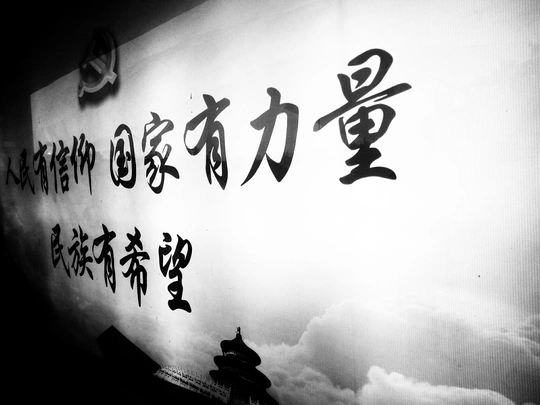 人民有信仰 国家有力量
民族有希望